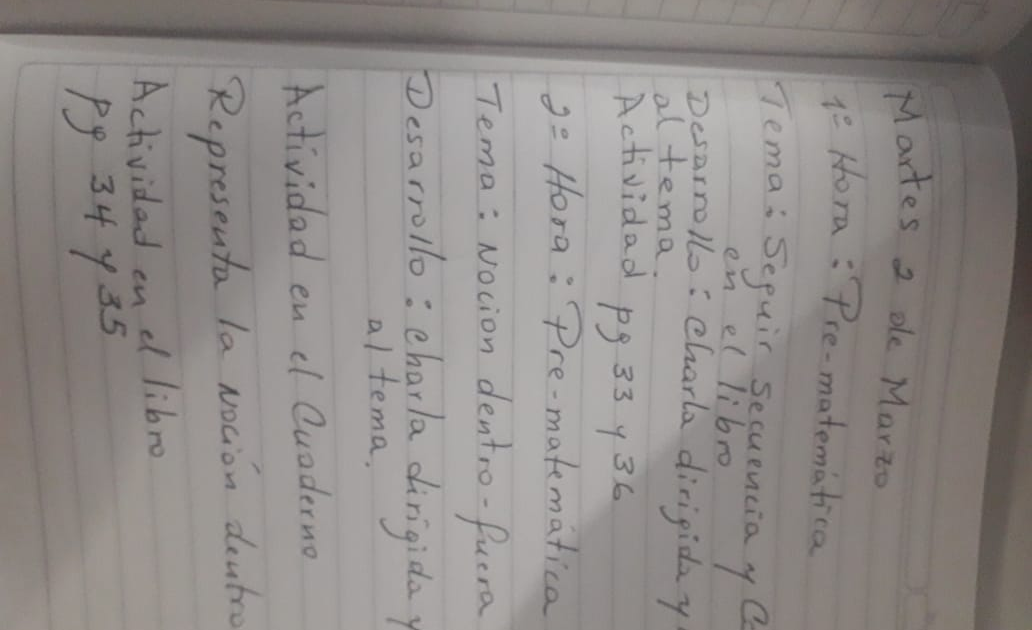 Martes 2 de Marzo
1º Hora : Pre-matemática
Tema : Seguir Secuencia y
en el libro
Desarrollo : Charla dirigida y
al tema.
Actividad pg 33 y 36
2º Hora : Pre-matemática
Tema : Noción dentro-fuera
Desarrollo : charla dirigida y
al tema.
Actividad en el Cuaderno
Representa la noción dentro
Actividad en el libro
pg 34 y 35